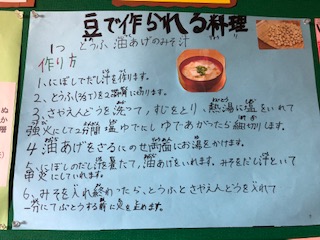 豆で作られる料理
1つ とうふ、油あげのみそ汁
作り方
1、にぼしでだし汁を作ります。
2、とうふを2㎝角に切ります。
3、さやえんどうを洗って、すじをとり、熱湯に塩をいれて
強火にして2分間塩ゆでしゆであがったら細切りします。
4、油あげをざるにのせ両面にお湯をかけます。
5、にぼしのだし汁を煮たて、油あげをいれます。みそをだし汁でといて
していれます。
6、みそを入れ終わったら、とうふとさやえんどうを入れて
ふっとうする前に火を止めます。